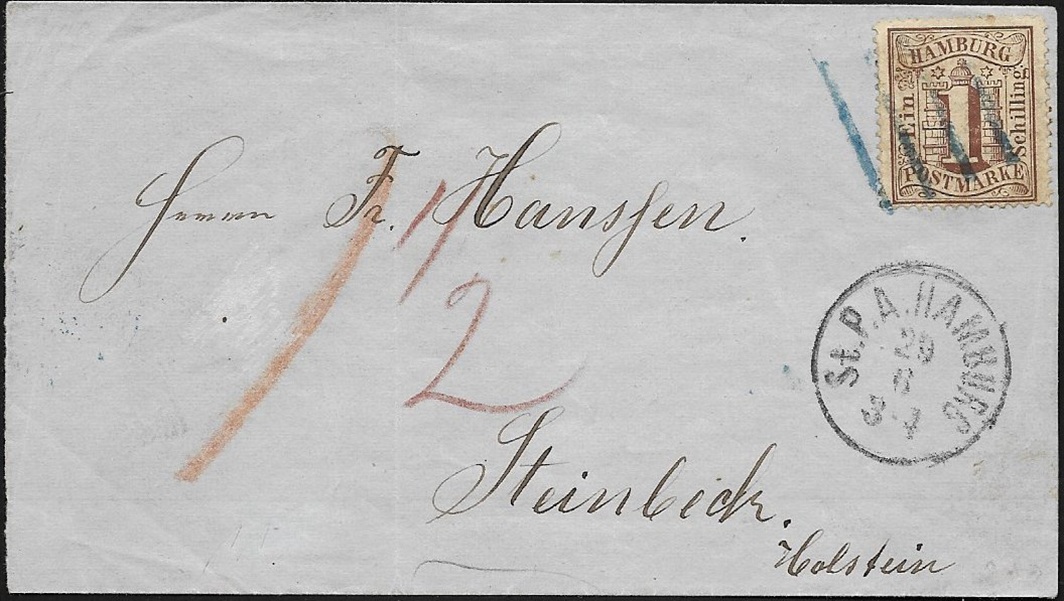 HAMBURG
Ein
1
Schilling
POSTMARKE
Herrn Fr. Hanssen.
1/2
St.P.A.HAMBURG
29
6
3-4
Steinbeck.
Holstein